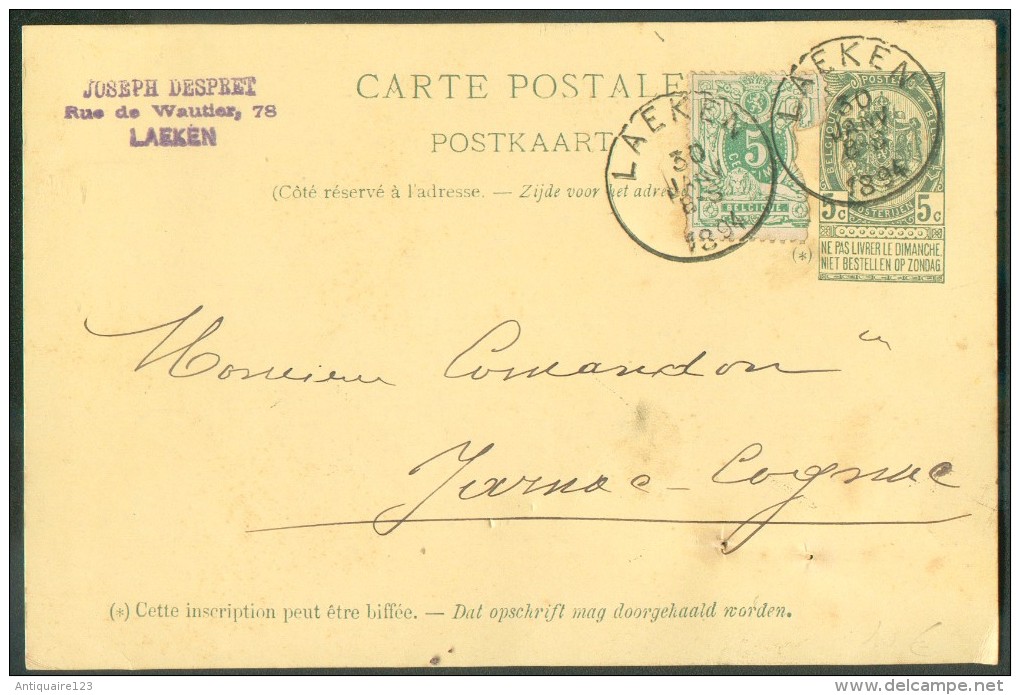 JOSEPH DESPRET
Rue de Wautier, 78
LAEKEN
CARTE POSTALE
POSTKAART
(Côté réservé à l'adresse. — Zijde voor het adre
LAEKEN
30
JANV
8-S
1894
5
BELGIQUE
LAEKEN
30
JANV
8-S
1894
POSTES
BELGIQUE
BELGIE
POSTERIJEN
5c 5c
NE PAS LIVRER LE DIMANCHE
NIET BESTELLEN OP ZONDAG
(*)
Monsieur Comandon
Jarnac - Cognac
(*) Cette inscription peut être biffée. — Dat opschrift mag doorgehaald worden.
Antiquaire123
delcampe.net